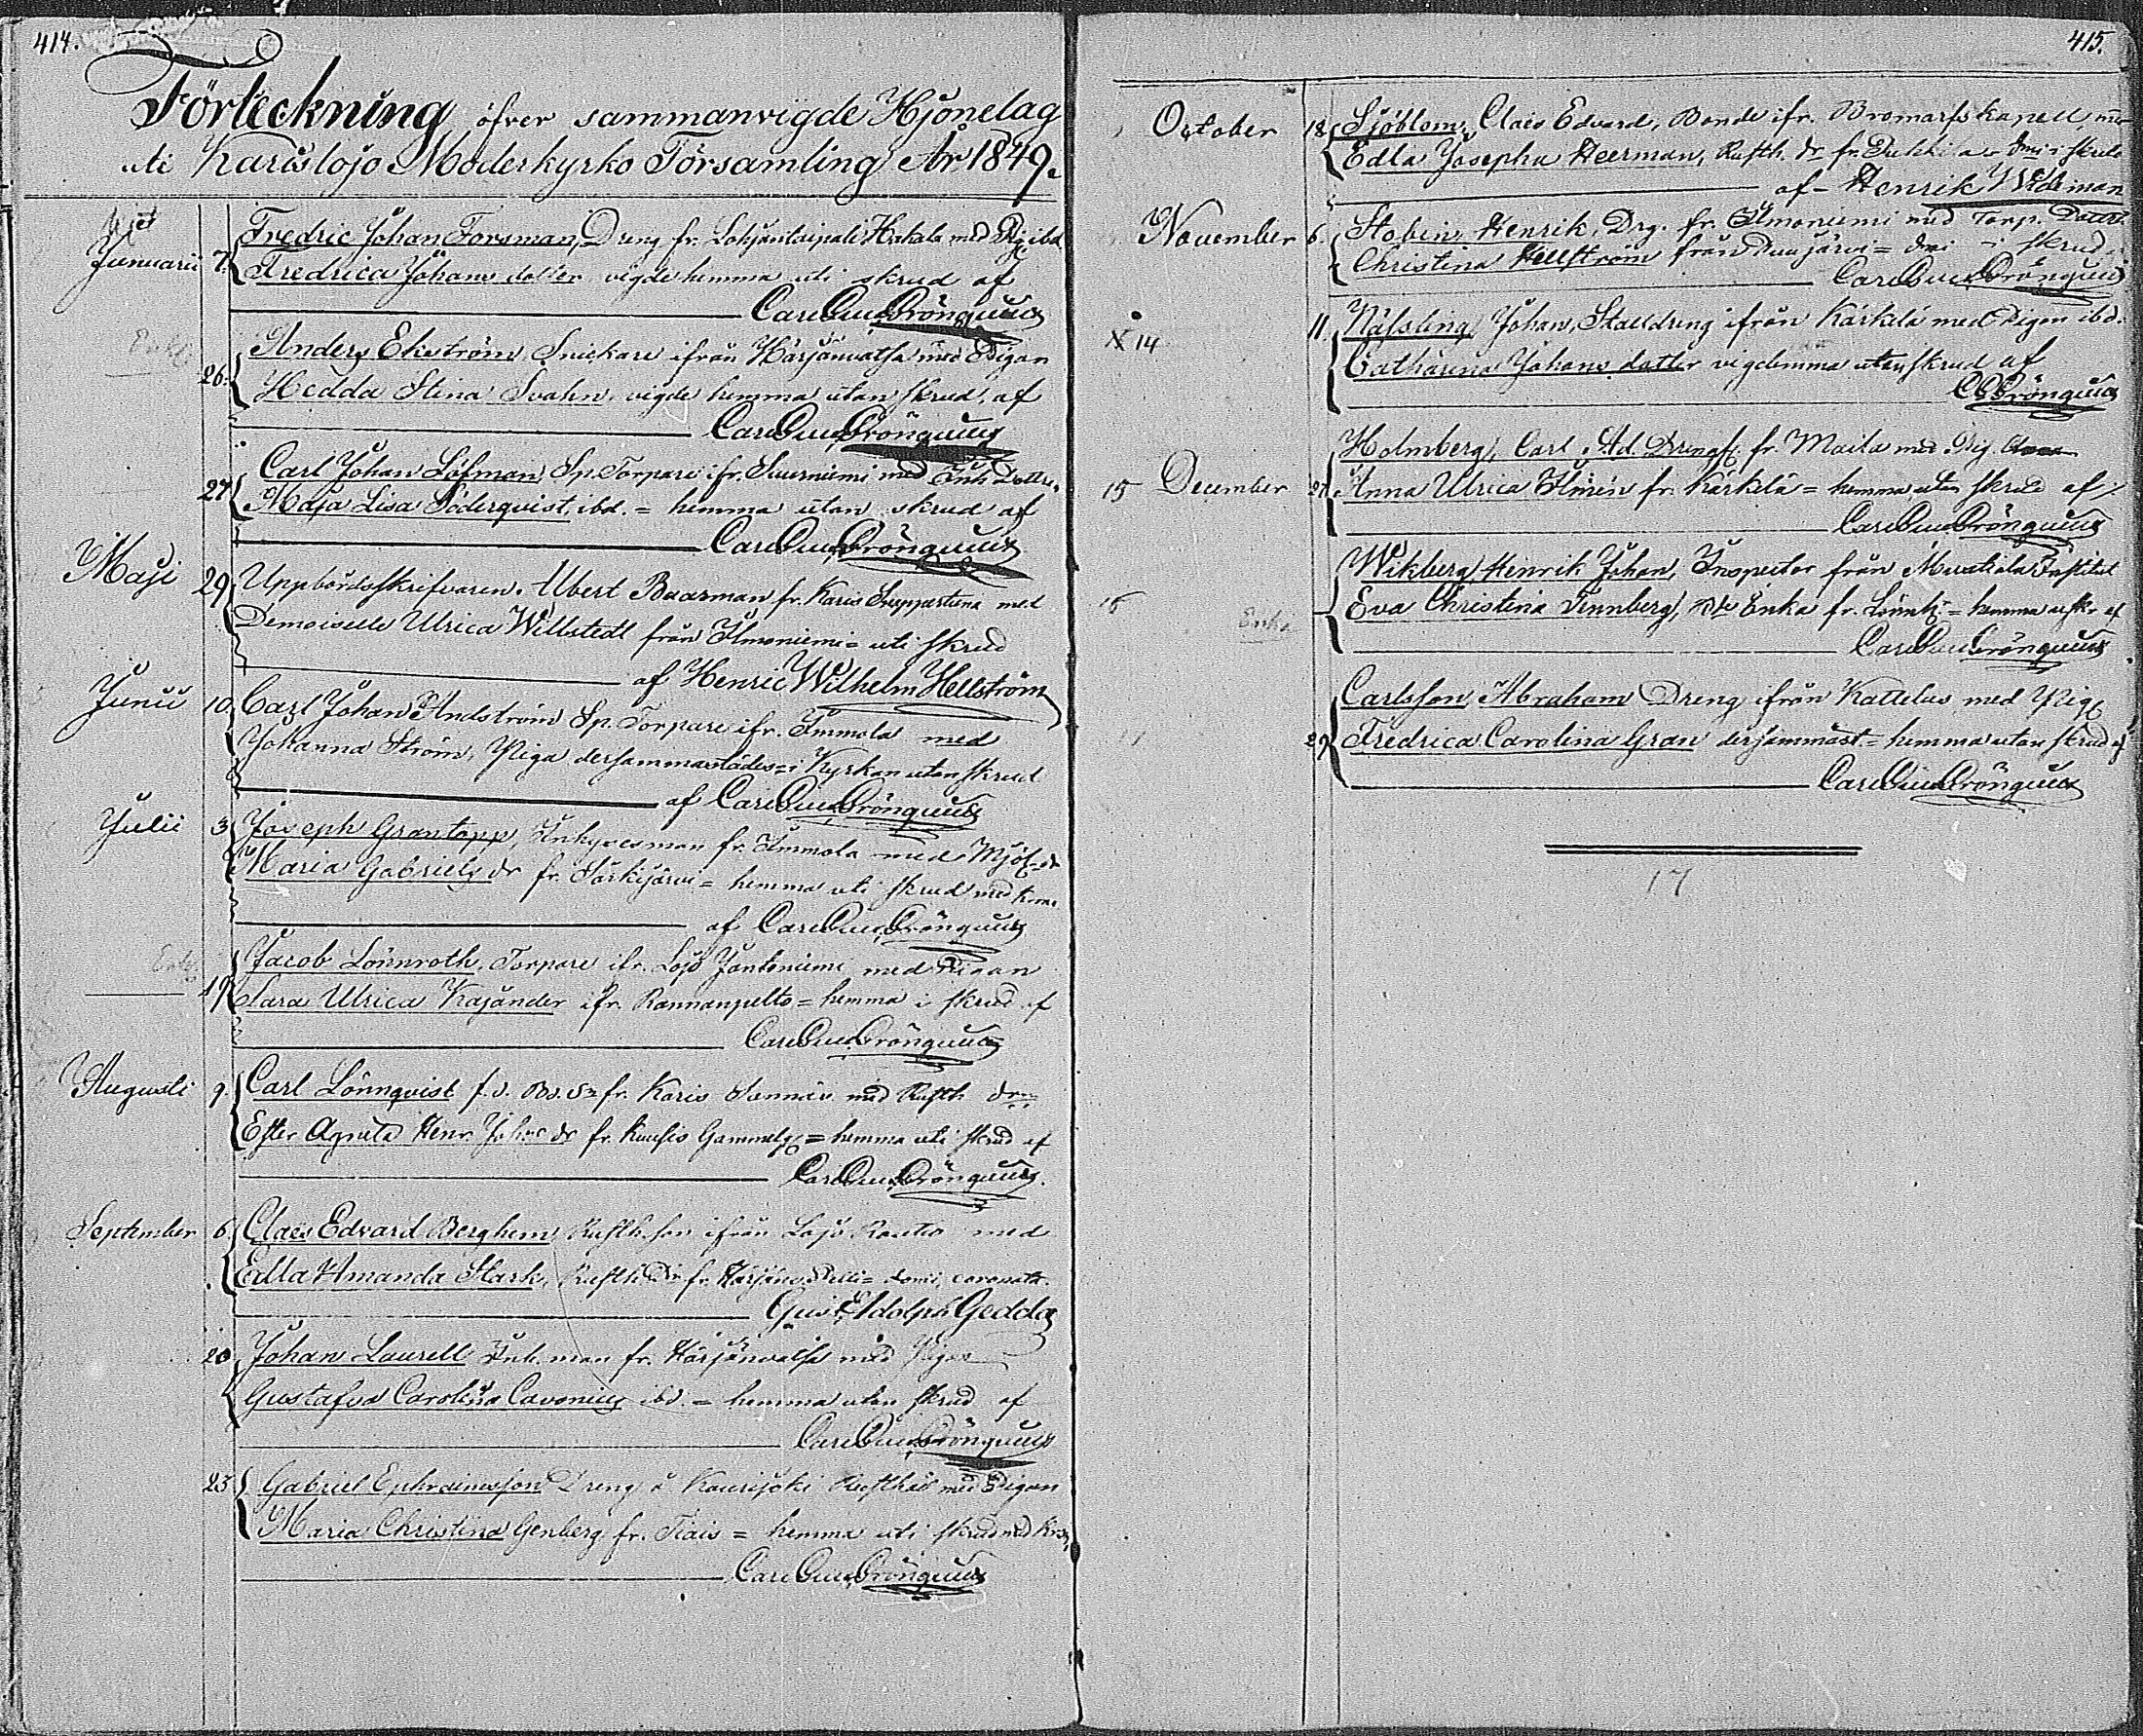 414.
Förteckning öfver sammanvigde Hjonelag
uti Karislojo Moderkyrko Församling År 1849.
Januarii 7. Fredric Johan Forsman, Dreng fr. Lohjantaipale Hakala med Pig. ibd.
Fredrica Johans dotter vigde hemma uti skrud af
Carl Gust. Crönquist
26. Anders Ekström, Snickare ifrån Härjänvatsa med Pigan
Hedda Stina Svahn vigde hemma utan skrud, af
Carl Gust. Crönquist
27. Carl Johan Löfman, Sp. Torpare ifr. Suurniemi med Inh. Dottr.
Maja Lisa Söderquist ibd. = hemma utan skrud af
Carl Gust. Crönquist
Maji 29. Uppbördsskrifvaren Albert Baarman fr. Karis med
Demoiselle Ulrica Willstedt från Ilmoniemi = uti skrud
af Henric Wilhelm Hellström
Junii 10. Carl Johan Andström Sp. Torpare ifr. Immola med
Johanna Ström, Piga dersammastädes = i Kyrkan utan skrud
af Carl Gust. Crönquist
Julii 3. Joseph Grantopp, Inhysesman fr. Immola med
Maria Gabriels dr fr. Särkijärvi = hemma uti skrud med
af Carl Gust. Crönquist
Enkl.
19. Jacob Lönnroth, Torpare ifr. Lojo Jantoniemi med Pigan
Sara Ulrica Kajander ifr. Rannanpelto = hemma i skrud af
Carl Gust. Crönquist
Augusti 9. Carl Lönnqvist fr. Karis med Rusth. dr.
Ester Agneta Henr. Johns dr fr. Gammelg. = hemma uti skrud af
Carl Gust. Crönquist
September 6. Claes Edvard Berghem Rusth. son ifrån Lojo med
Edla Amanda Stark, Rusth. Dr. fr. = domi, coronata.
Gust. Adolph Gedda
20. Johan Laurell Inh. man fr. Härjänvatsa med Pigan
Gustafva Carolina Cavonius ibd. = hemma utan skrud af
Carl Gust. Crönquist
23. Gabriel Ephraimsson Dreng å Kourjoki Rusthåll med Pigan
Maria Christina Genberg fr. Tiais = hemma uti skrud med
Carl Gust. Crönquist
415.
October 18. Sjöblom, Claes Edvard, Bonde ifr. Bromarfs kapell,
Edla Josepha Heerman, Rusth. dr fr. i skrud
af - Henrik Wideman
November 6. Stobin, Henrik, Drg. fr. Ilmoniemi med Torp. Dottr.
Christina Hellström från Puujärvi = i skrud
Carl Gust. Crönquist
X 14
11. Nässling, Johan, Stalldreng ifrån Kärkelä med Pigan ibd.
Catharina Johans dotter vigde hemma utan skrud af
C G Crönquist
15 December 27. Holmberg, Carl Ad. Dreng fr. Maila med Pig.
Anna Ulrica Ilmén fr. Kärkelä = hemma utan skrud af
Carl Gust. Crönquist
16 Enka
Wikberg, Henrik Johan, Inspector från Mustiala Institut
Eva Christina Tennberg, Enka fr. = hemma af
Carl Gust. Crönquist
29. Carlsson, Abraham Dreng ifrån Kattelus med Pig.
Fredrica Carolina Gran dersammast. = hemma utan skrud af
Carl Gust. Crönquist
17